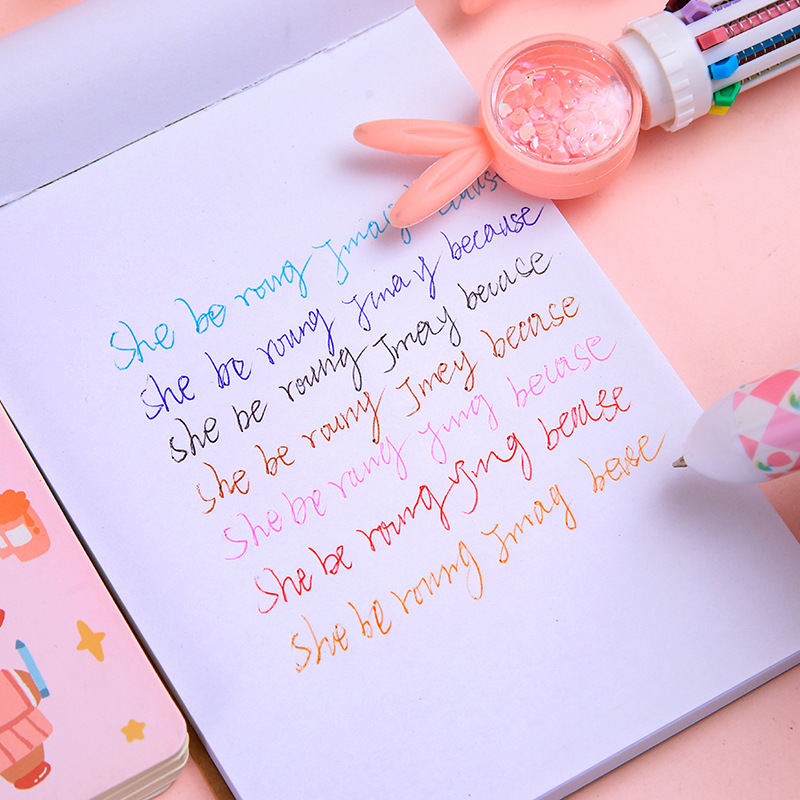 She be roung Jmay
She be roung Jmay because
She be roung Jmay becuase
She be rouny Jmey becuase
She be rang Jmg becuase
She be roung ying becuase
She be roung Jmag beuse